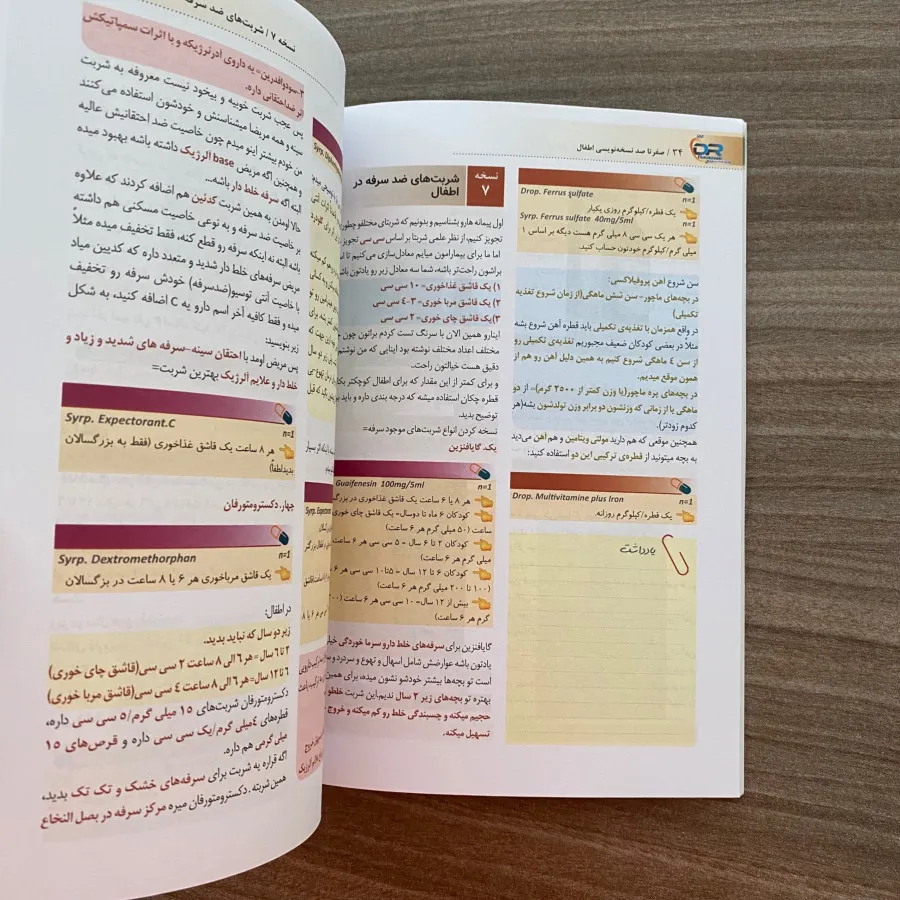 ۳۴ / صفر تا صد نسخه‌نویسی اطفال
DR
Drop. Ferrus sulfate
n=1
یک قطره/کیلوگرم روزی یکبار
Syrp. Ferrus sulfate 40mg/5ml
n=1
هر یک سی سی ۸ میلی گرم هست دیگه بر اساس ۱
میلی گرم/کیلوگرم خودتون حساب کنید.
سن شروع آهن پروفیلاکسی:
در بچه‌های ماچور= سن شش ماهگی(از زمان شروع تغذیه
تکمیلی)
در واقع همزمان با تغذیه‌ی تکمیلی باید قطره آهن شروع بشه
مثلاً در بعضی کودکان ضعیف مجبوریم تغذیه‌ی تکمیلی رو
از سن ۴ ماهگی شروع کنیم به همین دلیل آهن رو هم از
همون موقع میدیم.
در بچه‌های پره ماچور(با وزن کمتر از ۲۵۰۰ گرم)= از دو
ماهگی یا از زمانی که وزنشون دو برابر وزن تولدشون بشه(هر
کدوم زودتر).
همچنین موقعی که هم دارید مولتی ویتامین و هم آهن می‌دید
به بچه میتونید از قطره‌ی ترکیبی این دو استفاده کنید:
Drop. Multivitamine plus Iron
n=1
یک قطره/کیلوگرم روزانه.
یادداشت
نسخه
۷
شربت‌های ضد سرفه در
اطفال
اول پیمانه هارو بشناسیم و بدونیم که شربتای مختلفو چطور
تجویز کنیم، از نظر علمی شربتا بر اساس سی سی تجویز
اما ما برای بیمارامون میایم معادل‌سازی می‌کنیم تا
براشون راحت‌تر باشه، شما سه معادل زیر رو یادتون باشه
۱) یک قاشق غذاخوری= ۱۰ سی سی
۲) یک قاشق مرباخوری= ۳-۴ سی سی
۳) یک قاشق چای خوری= ۲ سی سی
اینارو همین الان با سرنگ تست کردم براتون چون
مختلف اعداد مختلف نوشته بود اینایی که من نوشتم
دقیق هست خیالتون راحت..
و برای کمتر از این مقدار که برای اطفال کوچکتر بکا
قطره چکان استفاده میشه که درجه بندی داره و باید بر
توضیح بدید.
نسخه کردن انواع شربت‌های موجود سرفه=
یک. گایافنزین
Guaifenesin 100mg/5ml
n=1
هر ۸ یا ۶ ساعت یک قاشق غذاخوری در بزرگ
کودکان ۶ ماه تا دوسال= یک قاشق چای خوری
ساعت (۵۰ میلی گرم هر ۶ ساعت)
کودکان ۲ تا ۶ سال = ۵ سی سی هر ۶ ساعت
گرم هر ۶ ساعت)
کودکان ۶ تا ۱۲ سال = ۵تا۱۰ سی سی هر ۶
(۱۰۰ تا ۲۰۰ میلی گرم هر ۶ ساعت)
بیش از ۱۲ سال= ۱۰ سی سی هر ۶ ساعت (۲۰۰
گرم هر ۶ ساعت)
گایافنزین برای سرفه‌های خلط دار و سرما خوردگی خیلی
یادتون باشه عوارضش شامل اسهال و تهوع و سردرد و
است تو بچه‌ها بیشتر خودشو نشون میده، برای همین
بهتره تو بچه‌های زیر ۲ سال ندیم. این شربت خلط‌و
حجیم میکنه و چسبندگی خلط رو کم میکنه و خروج
تسهیل میکنه.
نسخه ۷ / شربت‌های ضد سرفه
۳-سودوافدرین= یه داروی آدرنرژیکه و با اثرات سمپاتیکش
اثر ضداحتقانی داره.
پس عجب شربت خوبیه و بیخود نیست معروفه به شربت
سینه و همه مریضا میشناسنش و خودشون استفاده می‌کنند
من خودم بیشتر اینو میدم چون خاصیت ضد احتقانیش عالیه
و همچنین اگه مریض base آلرژیک داشته باشه بهبود میده
البته اگه سرفه خلط دار باشه...
حالا اومدن به همین شربت کدئین هم اضافه کردند که علاوه
بر خاصیت ضد سرفه و به نوعی خاصیت مسکنی هم داشته
باشه البته نه اینکه سرفه رو قطع کنه، فقط تخفیف میده مثلاً
مریض سرفه‌های خلط دار شدید و متعدد داره که کدیین میاد
با خاصیت آنتی توسیو(ضدسرفه) خودش سرفه رو تخفیف
میده و فقط کافیه آخر اسم دارو یه C اضافه کنید، به شکل
زیر بنویسید:
پس مریض اومد با احتقان سینه-سرفه های شدید و زیاد و
خلط دار و علایم آلرژیک بهترین شربت=
Syrp. Expectorant.C
n=1
هر ۸ ساعت یک قاشق غذاخوری (فقط به بزرگسالان
بدید لطفا)
چهار. دکسترومتورفان
Syrp. Dextromethorphan
n=1
یک قاشق مرباخوری هر ۶ یا ۸ ساعت در بزگسالان
در اطفال:
زیر دو سال که نباید بدید.
۲ تا ۶ سال= هر ۶ الی ۸ ساعت ۲ سی سی(قاشق چای خوری)
۶ تا ۱۲ سال= هر ۶ الی ۸ ساعت ۴ سی سی(قاشق مربا خوری)
دکسترومتورفان شربت‌های ۱۵ میلی گرم/۵ سی سی داره،
قطره‌های ۴میلی گرم/یک سی سی داره و قرص‌های ۱۵
میلی گرمی هم داره.
اگه قراره یه شربت برای سرفه‌های خشک و تک تک بدید،
همین شربته . دکسترومتورفان میره مرکز سرفه در بصل النخاع